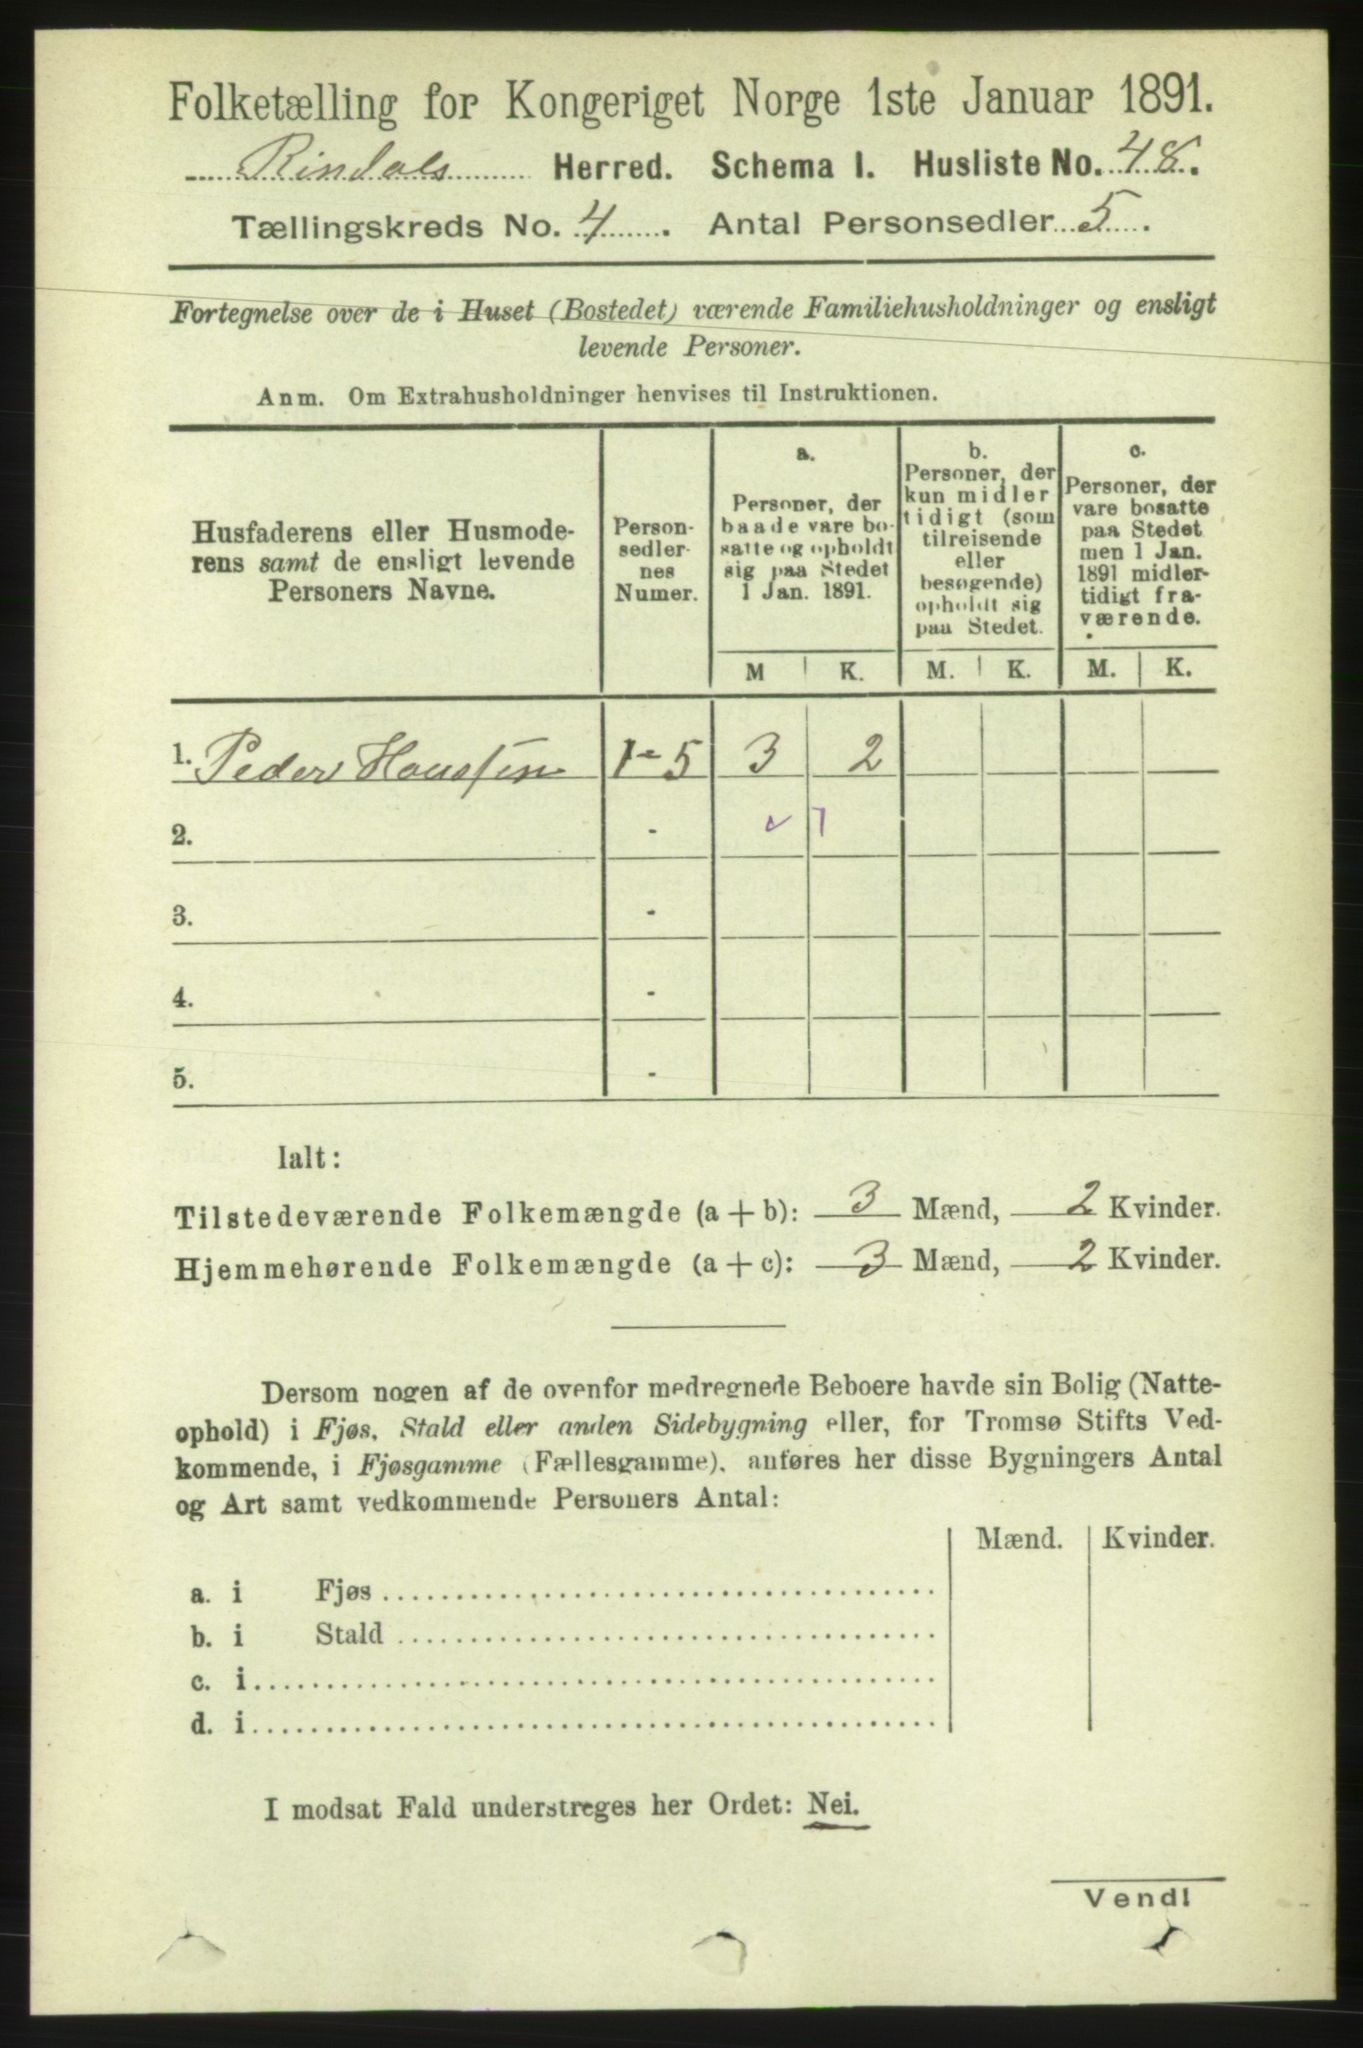 Folketælling for Kongeriget Norge 1ste Januar 1891.
Rindals Herred. Schema I. Husliste No. 48.
Tællingskreds No. 4. Antal Personsedler 5.
Fortegnelse over de i Huset (Bostedet) værende Familiehusholdninger og ensligt
levende Personer.
Anm. Om Extrahusholdninger henvises til Instruktionen.
Husfaderens eller Husmode-
rens samt de ensligt levende
Personers Navne.
Person-
sedler-
nes
Numer.
a.
Personer, der
baade vare bo-
satte og opholdt
sig paa Stedet
1 Jan. 1891.
b.
Personer, der
kun midler
tidigt (som
tilreisende
eller
besøgende)
opholdt sig
paa Stedet.
c.
Personer, der
vare bosatte
paa Stedet
men 1 Jan.
1891 midler-
tidigt fra-
værende.
M K. M. K. M. K.
1. Peder 1-5 3 2
2. -
3. -
4. -
5. -
Ialt:
Tilstedeværende Folkemængde (a + b): 3 Mænd, 2 Kvinder.
Hjemmehørende Folkemængde (a + c): 3 Mænd, 2 Kvinder.
Dersom nogen af de ovenfor medregnede Beboere havde sin Bolig (Natte-
ophold) i Fjøs, Stald eller anden Sidebygning eller, for Tromsø Stifts Ved-
kommende, i Fjøsgamme (Fællesgamme), anføres her disse Bygningers Antal
og Art samt vedkommende Personers Antal:
Mænd. Kvinder.
a. i Fjøs
b. i Stald
c. i
d. i
I modsat Fald understreges her Ordet: Nei.
Vend!